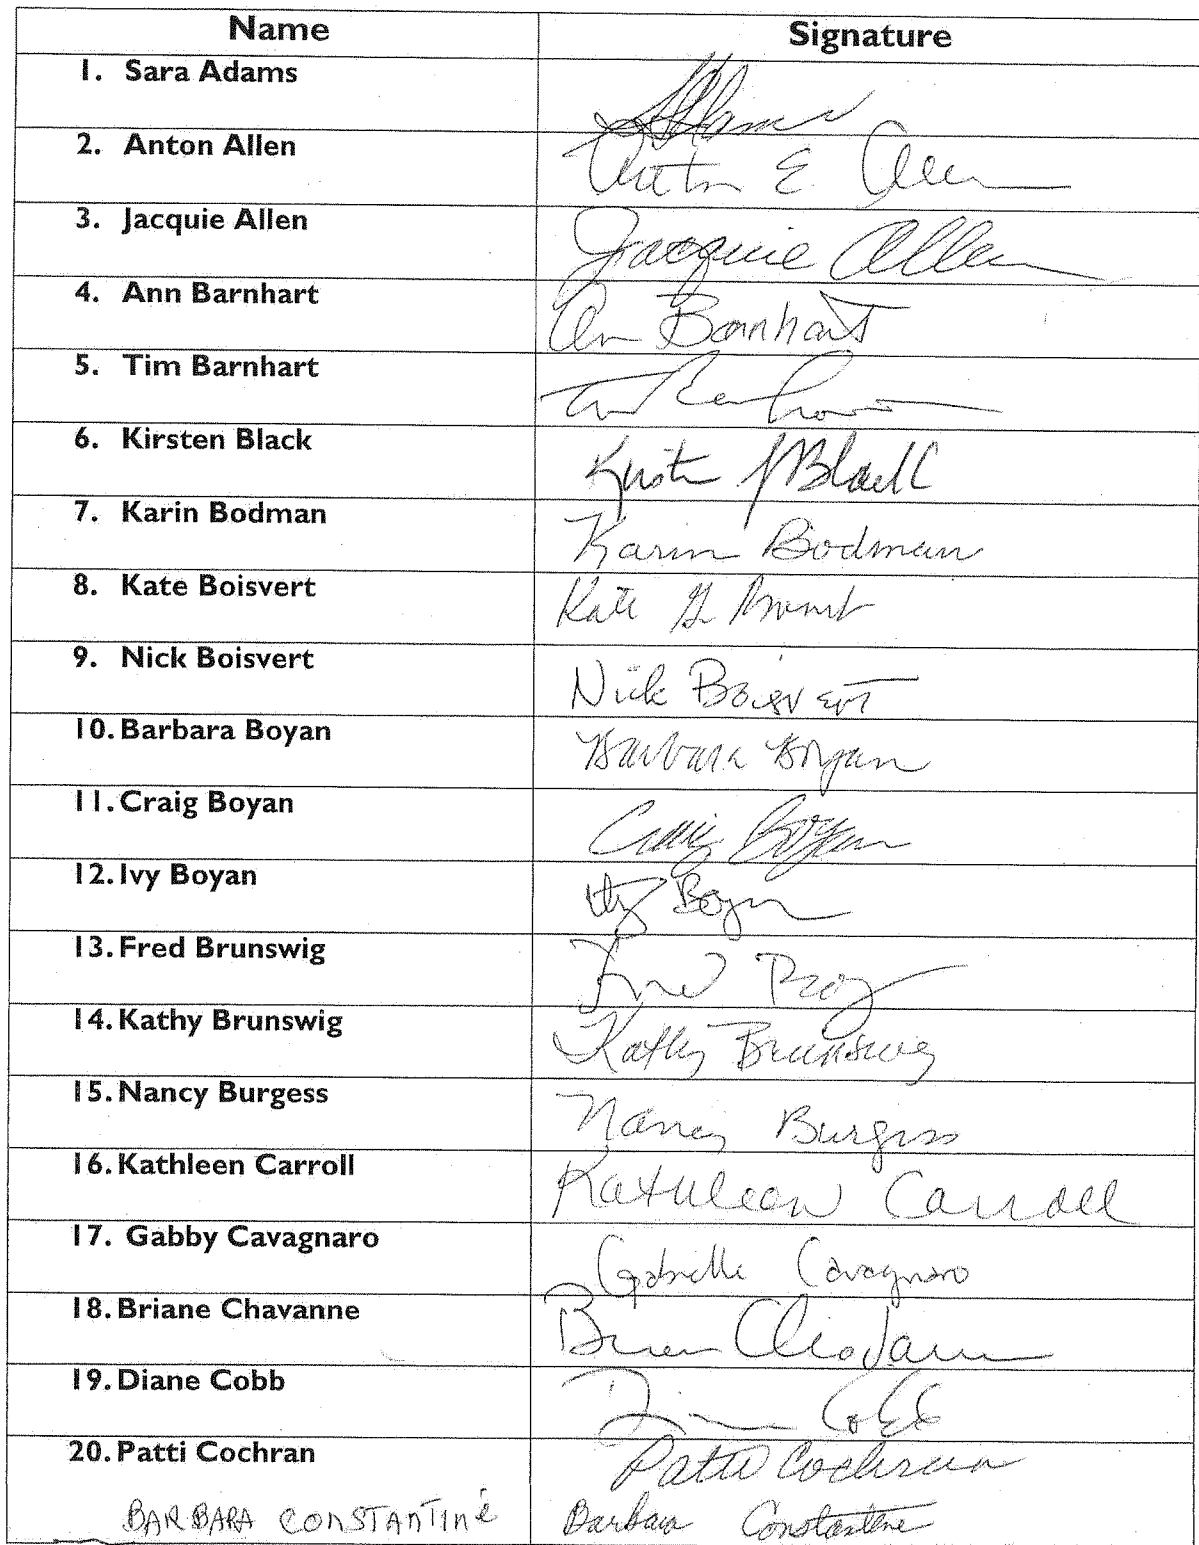 Name Signature
1. Sara Adams SAdams
2. Anton Allen Anton E. Allen
3. Jacquie Allen Jacquie Allen
4. Ann Barnhart Ann Barnhart
5. Tim Barnhart
6. Kirsten Black Kirsten J Black
7. Karin Bodman Karin Bodman
8. Kate Boisvert Kate
9. Nick Boisvert Nick Boisvert
10. Barbara Boyan Barbara Boyan
11. Craig Boyan Craig Boyan
12. Ivy Boyan Ivy Boyan
13. Fred Brunswig Fred
14. Kathy Brunswig Kathy Brunswig
15. Nancy Burgess Nancy Burgess
16. Kathleen Carroll Kathleen Carroll
17. Gabby Cavagnaro Gabrielle Cavagnaro
18. Briane Chavanne
19. Diane Cobb Diane Cobb
20. Patti Cochran Patti Cochran
BARBARA CONSTANTINE Barbara Constantine